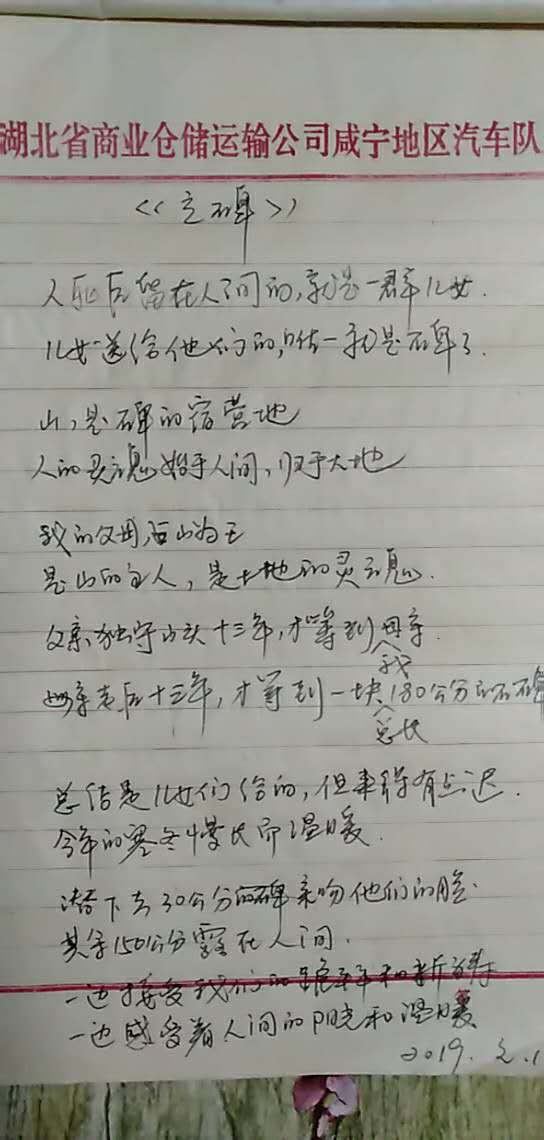 湖北省商业仓储运输公司咸宁地区汽车队
<<立碑>>
人死后留在人间的,就是一群儿女.
儿女送给他们的,唯一就是石碑了.
山,是碑的宿营地
人的灵魂始于人间,归于大地
我的父母,占山为王
是山的主人,是大地的灵魂.
父亲独守山头十三年,才等到母亲.
我
母亲走后十三年,才等到一块180公分的石碑
总长
总结是儿女们给的,但来得有点迟.
今年的寒冬慢长而温暖.
潜下去30公分的碑亲吻他们的脸.
其余150公分露在人间.
一边接受我们的跪拜和祈祷
一边感受着人间的阳光和温暖
2019.2.1